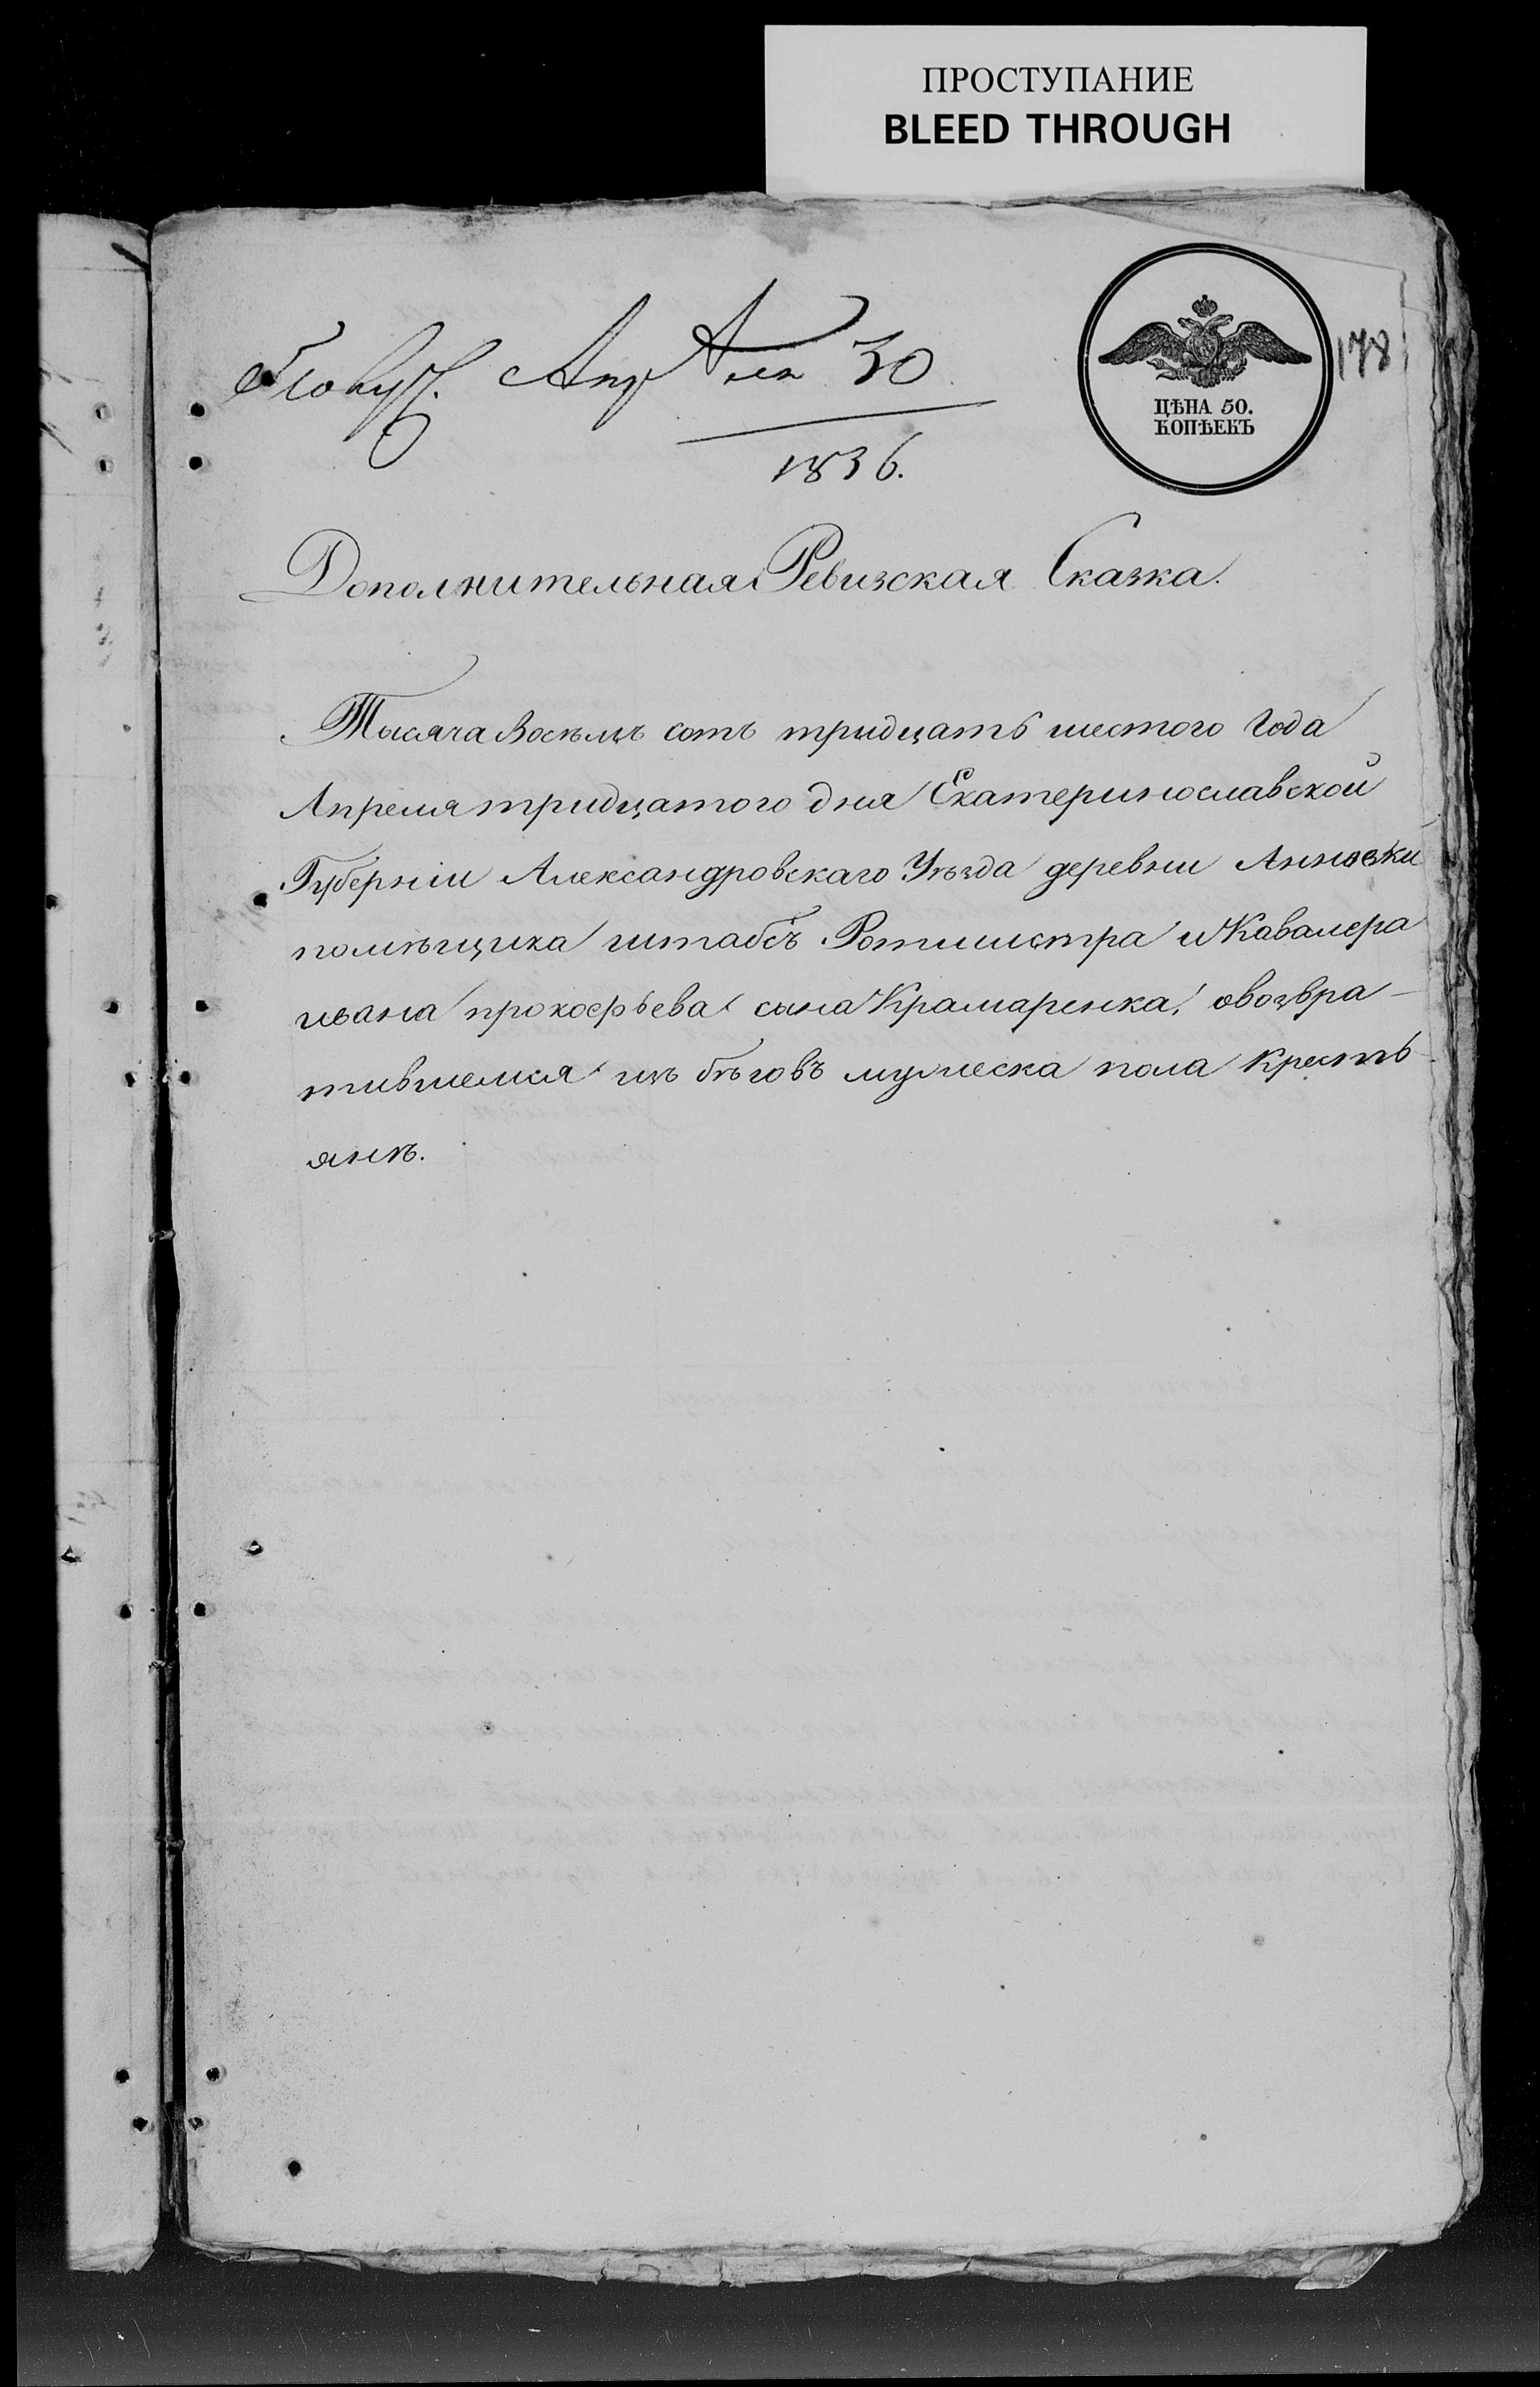 ПРОСТУПАНИЕ
BLEED THROUGH
178
ЦѢНА 50.
КОПѢЕКЪ
Апрѣля 30
1836.
Дополнительная Ревизская Сказка.
Тысяча Восемь сотъ тридцать шестого Года
Апреля тридцатого дня Екатеринославской
Губерніи Александровскаго Уѣзда деревни Анновки
помѣщика штабсъ Ротмистра и Кавалера
ивана прокофьева сына Крамаренка, овозвра-
тившемся изъ бѣговъ мужеска пола Кресть-
янѣ.